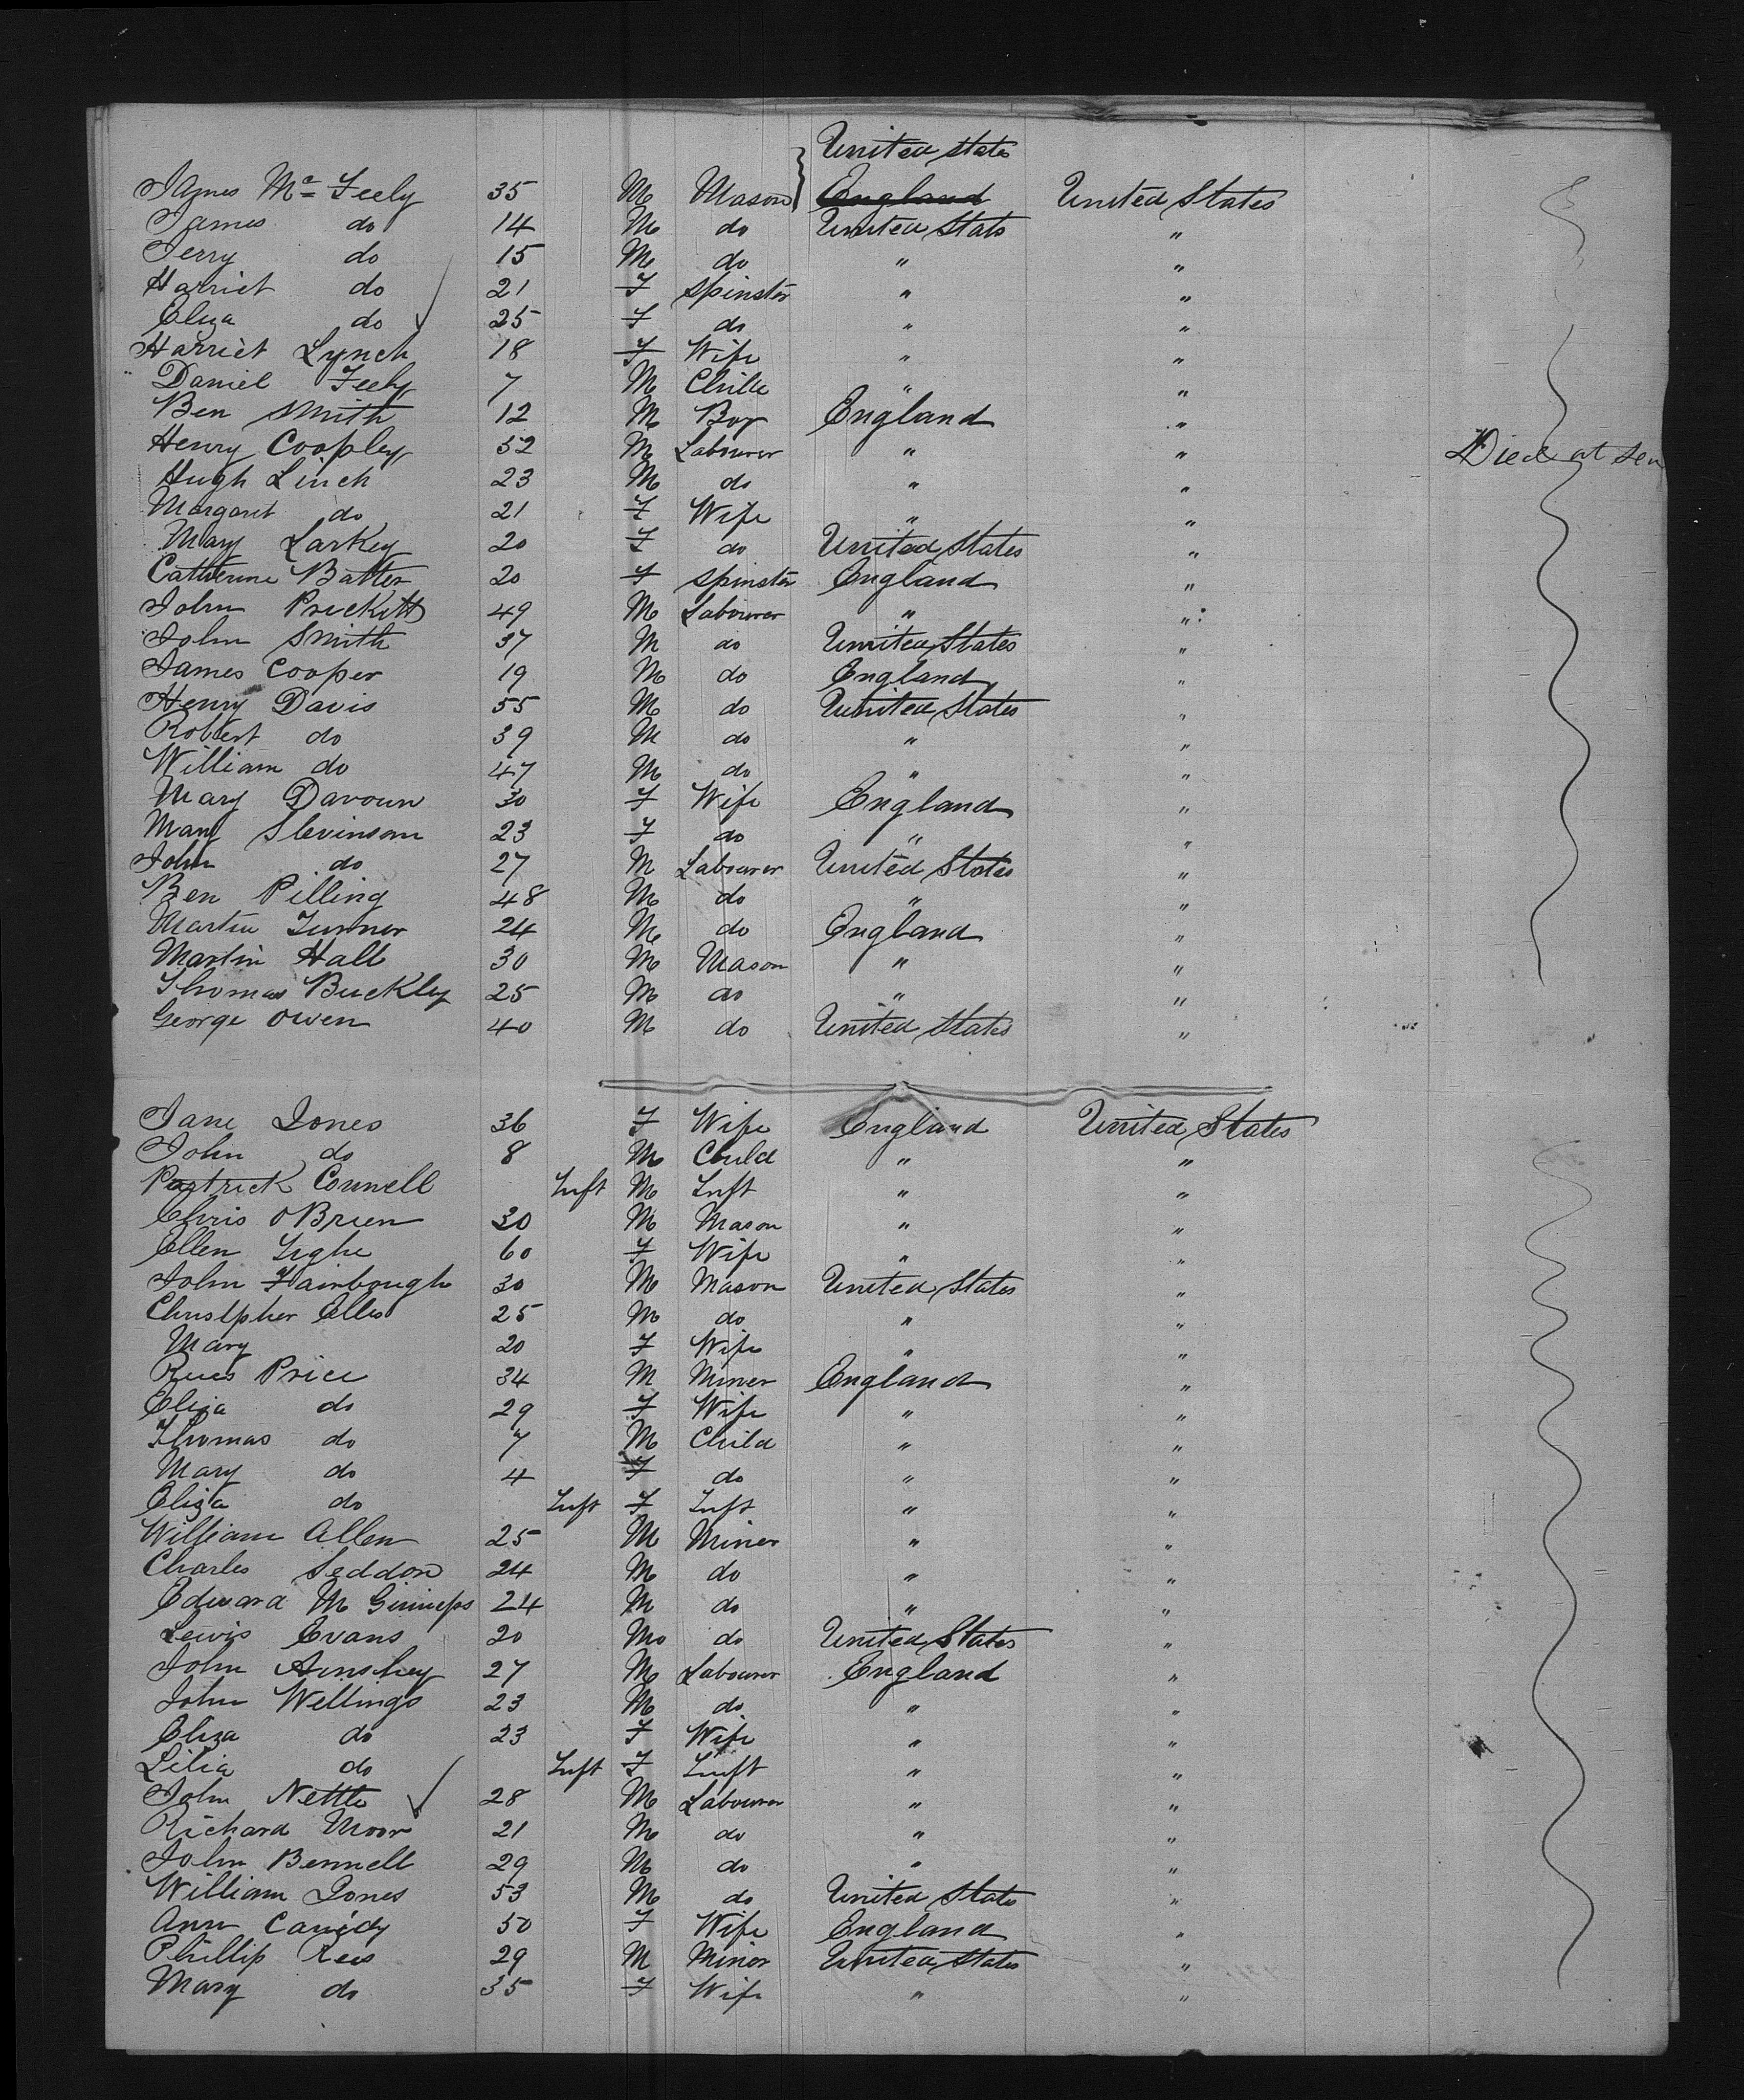 United States
James Mc Feely 35 M Mason England United States
James do 14 M do United States "
Jerry do 15 M do " "
Harriet do 21 F Spinster " "
Eliza do 25 F do " "
Harriet Lynch 18 F Wife " "
" Daniel Feely 7 M Child " "
Ben Smith 12 M Boy England "
Henry Coopley 52 M Labourer " " Died at sea
Hugh Linch 23 M do " "
Margaret do 21 F Wife " "
Mary Larkey 20 F do United States "
Catherine Batter 20 F Spinster England "
John Prickitt 49 M Labourer " "
John Smith 37 M do United States "
James Cooper 19 M do England "
Henry Davis 55 M do United States "
Robert do 39 M do " "
William do 47 M do " "
Mary Davoun 30 F Wife England "
Mary Slevinson 23 F do " "
John do 27 M Labourer United States "
Ben Pilling 48 M do " "
Martin Turner 24 M do England "
Martin Hall 30 M Mason " "
Thomas Buckley 25 M do " "
George Owen 40 M do United States "
Jane Jones 36 F Wife England United States
John do 8 M Child " "
Patrick Connell Inft M Inft " "
Chris OBrien 30 M Mason " "
Ellen Tighe 60 F Wife " "
John Fairbough 30 M Mason United States "
Christpher Ellis 25 M do " "
Mary 20 F Wife " "
Rees Price 34 M Miner England "
Eliza do 29 F Wife " "
Thomas do 7 M Child " "
Mary do 4 F do " "
Eliza do Inft F Inft " "
William Allen 25 M Miner " "
Charles Seddon 24 M do " "
Edward M Ginness 24 M do " "
Lewis Evans 20 M do United States "
John Ainsley 27 M Labourer England "
John Wellings 23 M do " "
Eliza do 23 F Wife " "
Lilia do Inft F Inft " "
John Nettle 28 M Labourer " "
Richard Moor 21 M do " "
John Bennell 29 M do " "
William Jones 53 M do United States "
Ann Canidy 50 F Wife England "
Phillip Rees 29 M Minor United States "
Mary do 35 F Wife " "